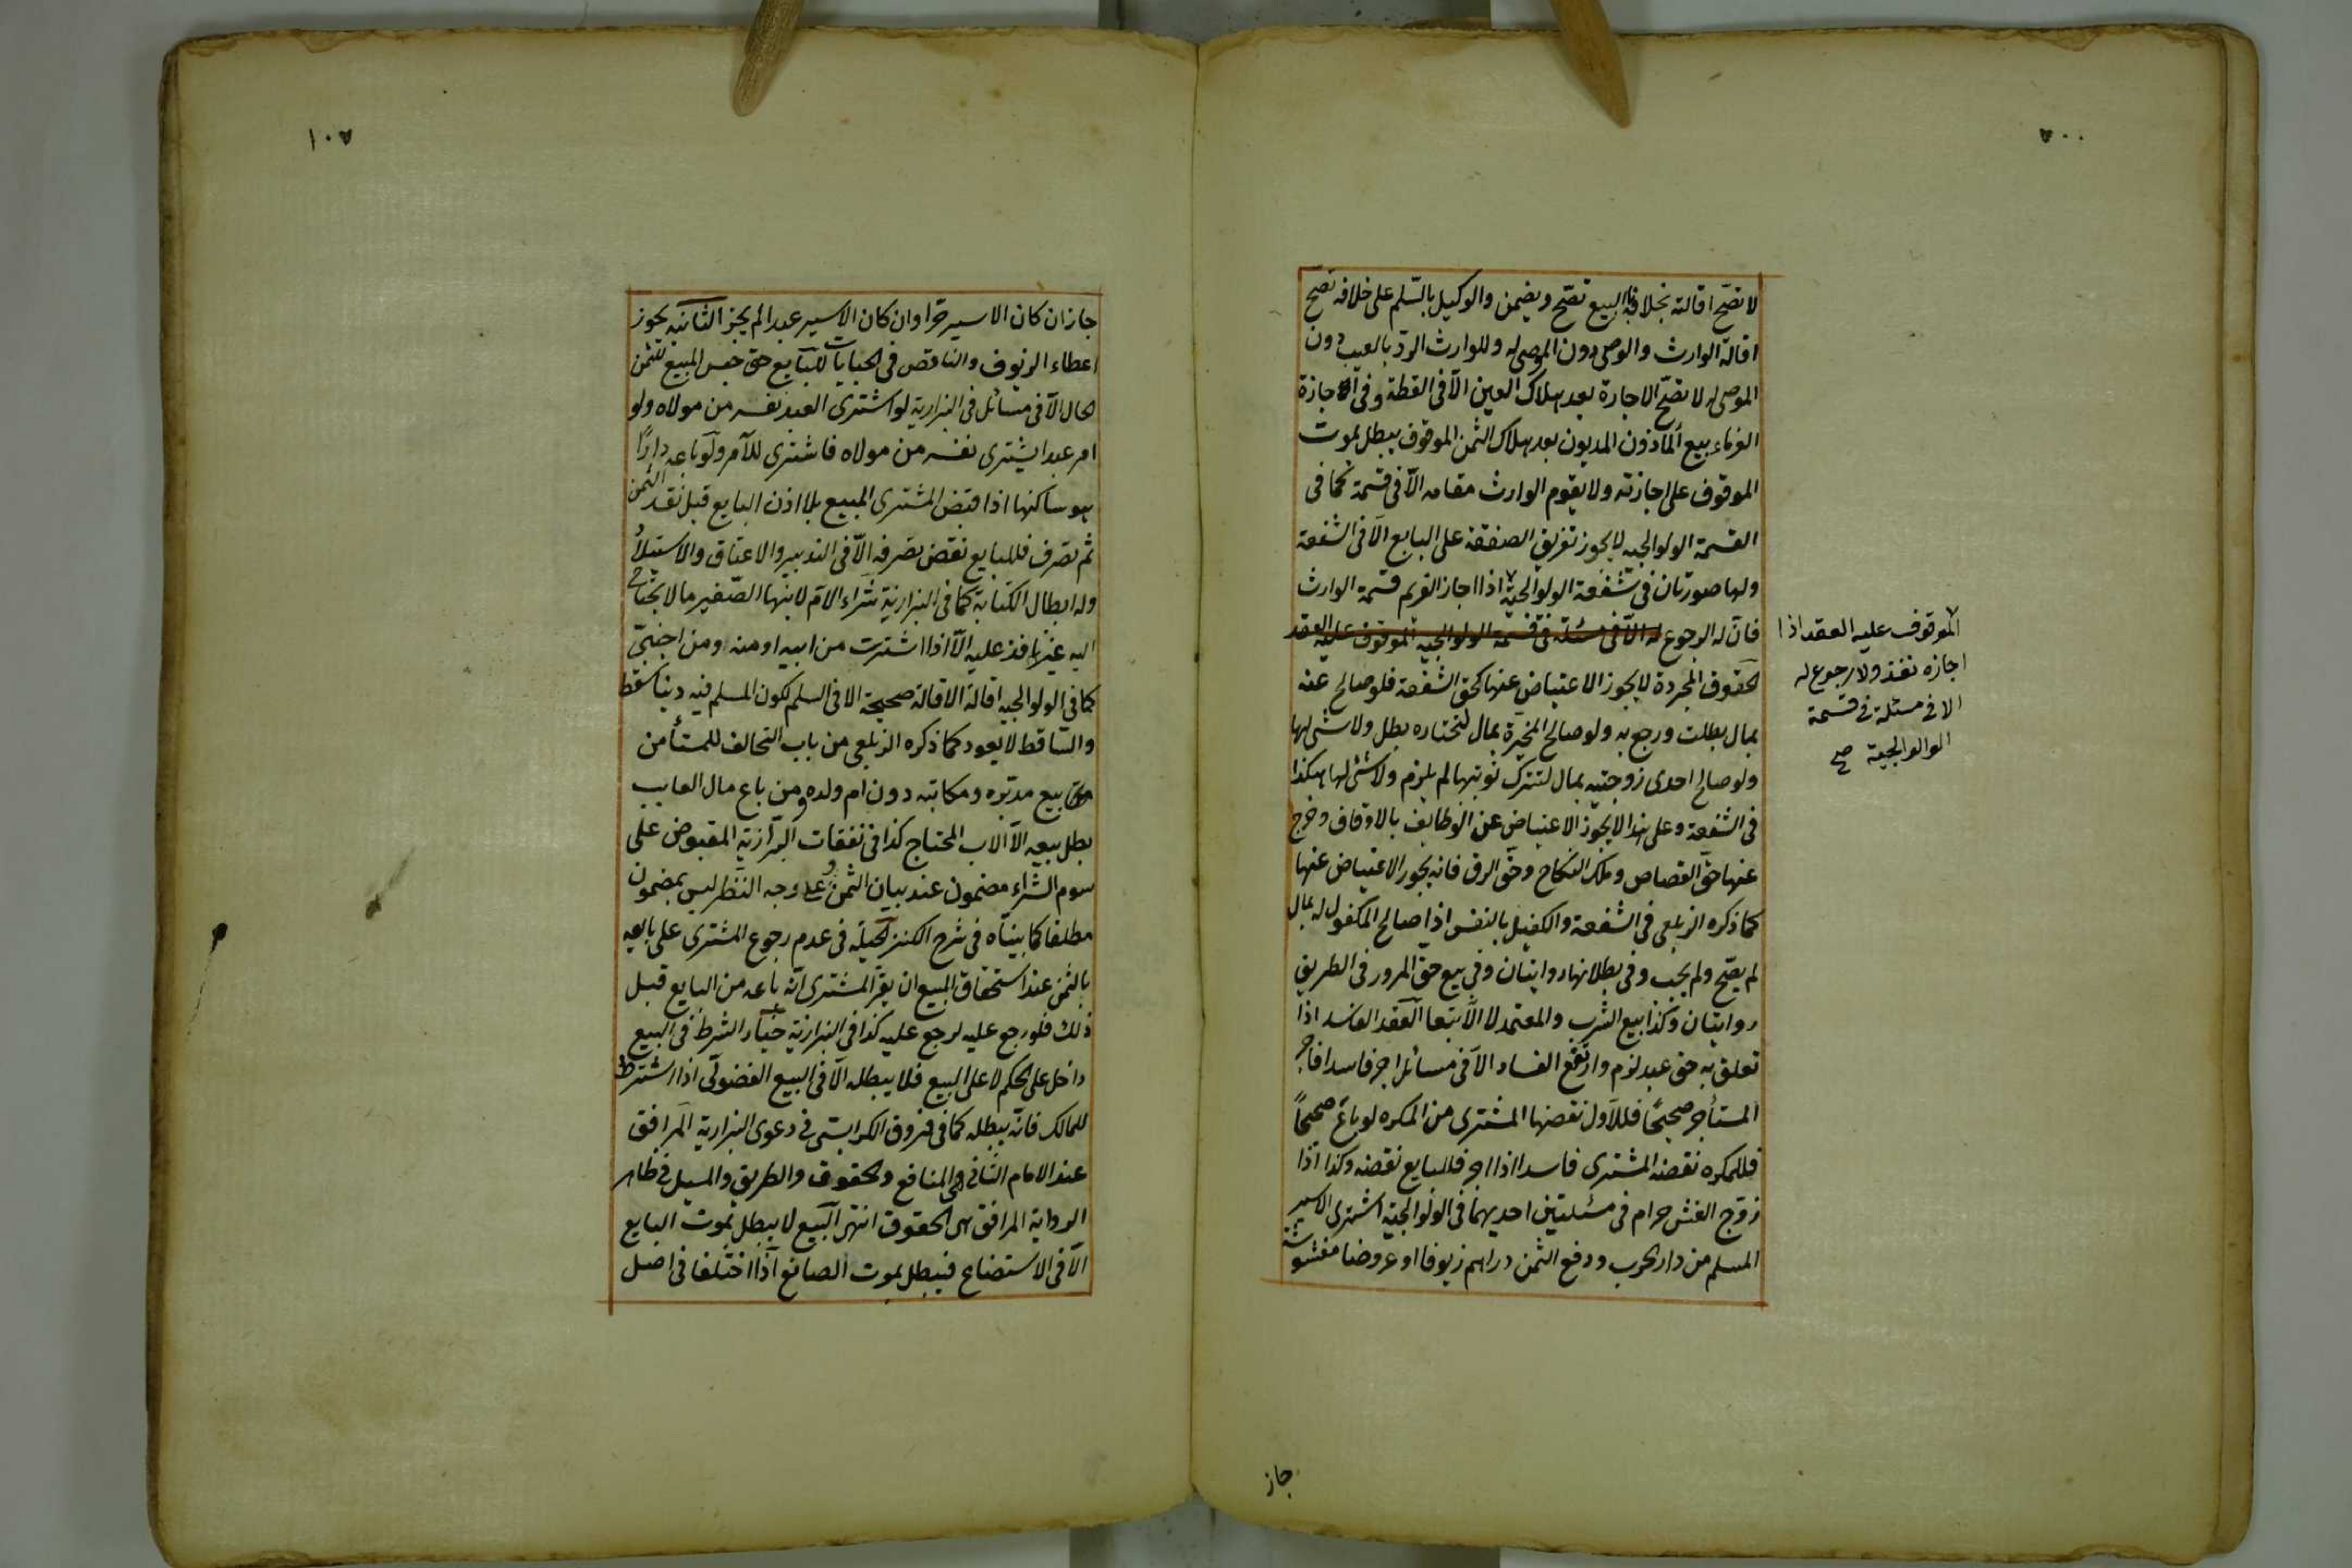 ٥٠٠
لا تصح اقالته بخلافه البيع تصح ويضمن والوكيل بالسلم على خلافه تصح
اقالة الوارث والوصى دون الموصى له وللوارث الرد بالعيب دون
الموصى له لا تصح الاجارة بعد هلاك العين الا فى اللقطة وفى اجازة
الغرماء بيع المأذون المديون بعد هلاك الثمن الموقوف يبطل بموت
الموقوف على اجازته ولا يقوم الوارث مقامه الا فى قسمة كما فى
القسمة الولوالجيه لا يجوز تفريق الصفقة على البايع الا فى الشفعة
ولها صورتان فى شفعة الولوالجية اذا اجاز الغريم قسمة الوارث
فان له الرجوع له الا فى مسئلة فى قسمة الولوالجيه الموقوف عليه العقد
الحقوق المجردة لا يجوز الاعتياض عنها كحق الشفعة فلو صالح عنه
بمال بطلت ورجع به ولو صالح المخيرة بمال لتختاره بطل ولا شئ لها
ولو صالح احدى زوجتيه بمال لتترك نوبتها لم يلزم ولا شئ لها هكذا
فى الشفعة وعلى هذا لا يجوز الاعتياض عن الوظايف بالاوقاف وخرج
عنها حق القصاص وملك النكاح وحق الرق فانه يجوز الاعتياض عنها
كما ذكره الزيلعى فى الشفعة والكفيل بالنفس اذا صالح المكفول له بمال
لم يصح ولم يجب وفى بطلانها روايتان وفى بيع حق المرور فى الطريق
روايتان وكذا بيع الشرب والمعتمد لا الا تبعا العقد الفاسد اذا
تعلق به حق عبد لزم وارتفع الفساد الا فى مسائل اجر فاسدا فاجر
المستأجر صحيحا فللاول نقضها المشترى من المكره لو باع صحيحا
فللمكره نقضه المشترى فاسدا اذا اجر فللبايع نقضه وكذا اذا
زوج الغش حرام فى مسئلتين احديهما فى الولوالجية اشترى الاسير
المسلم من دار الحرب ودفع الثمن دراهم زيوفا او عروضا مغشوشة
الموقوف عليه العقد اذا
اجازه نفذ ولا رجوع له
الا فى مسئلة فى قسمة
الوالوالجية صح
جاز
١٠٧
جاز ان كان الاسير حرا وان كان الاسير عبدا لم يجز الثانيه يجوز
اعطاء الزيوف والناقص فى الجبايات للبايع حق حبس المبيع للثمن
الحال الا فى مسائل فى البزازية لو اشترى العبد نفسه من مولاه ولو
امر عبدا يشترى نفسه من مولاه فاشترى للآمر ولو باعه دارا
هو ساكنها اذا قبض المشترى المبيع بلا اذن البايع قبل نقد الثمن
ثم تصرف فللبايع نقض تصرفه الا فى التدبير والاعتاق والاستيلاد
وله ابطال الكتابة كما فى البزازية شراء الام لابنها الصغير ما لا يحتاج
اليه غير نافذ عليه الا اذا اشترت من ابيه او منه ومن اجنبى
كما فى الولوالجيه اقالة الاقالة صحيحة الا فى السلم لكون المسلم فيه دينا سقط
والساقط لا يعود كما ذكره الزيلعى من باب التحالف للمستأمن
بيع مدبره ومكاتبه دون ام ولده ومن باع مال الغايب
بطل بيعه الا الاب المحتاج كذا فى نفقات البزازية المقبوض على
سوم الشراء مضمون عند بيان الثمن وعلى وجه النظر ليس بمضمون
مطلقا كما بيناه فى شرح الكنز الحيلة فى عدم رجوع المشترى على بايعه
بالثمن عند استحقاق المبيع ان يقر المشترى انه باعه من البايع قبل
ذلك فلو رجع عليه لرجع عليه كذا فى البزازية خيار الشرط فى البيع
داخل على الحكم لا على البيع فلا يبطله الا فى البيع الفضولى اذا اشترط
للمالك فانه يبطله كما فى فروق الكرابيسى فى دعوى البزازية المرافق
عند الامام الثانى هى المنافع والحقوق والطريق والمسيل فى ظاهر
الرواية المرافق هى الحقوق انتهى البيع لا يبطل بموت البايع
الا فى الاستصناع فيبطل بموت الصانع اذا اختلفا فى اصل